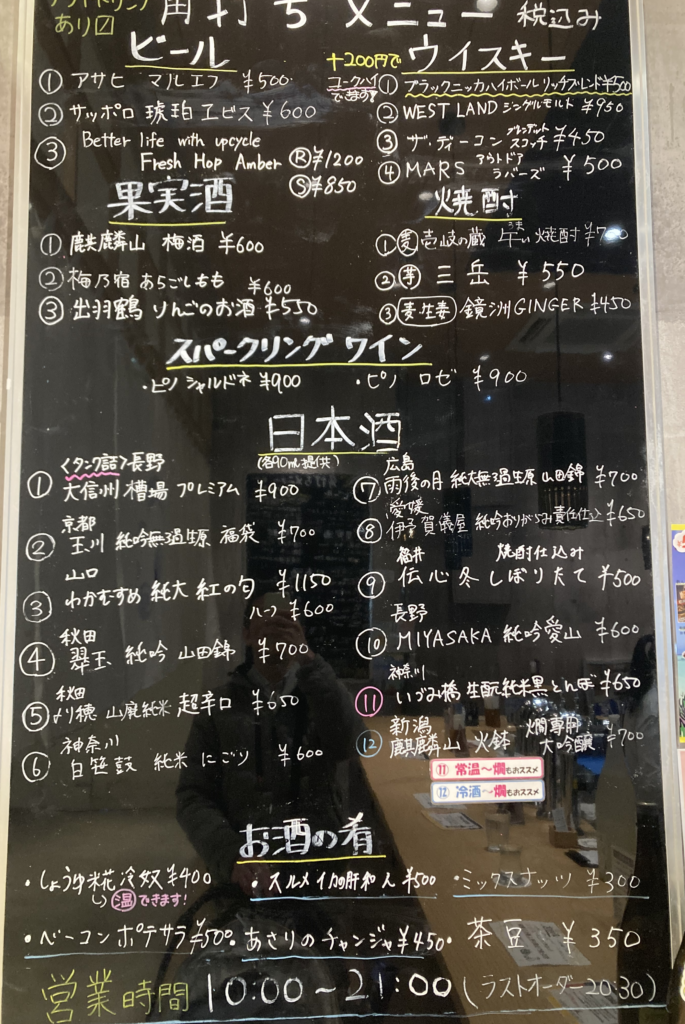 あり
角打ちメニュー 税込み
ビール
① アサヒ マルエフ ¥500
② サッポロ 琥珀ヱビス ¥600
③ Better life with upcycle
Fresh Hop Amber Ⓡ¥1200
Ⓢ¥850
+200円で
コークハイ
ウイスキー
① ブラックニッカハイボールリッチブレンド¥500
② WEST LAND シングルモルト ¥950
③ ザ・ディーコン ブレンデット スコッチ ¥450
④ MARS アウトドア ラバーズ ¥500
果実酒
① 麒麟山 梅酒 ¥600
② 梅乃宿 あらごしもも ¥600
③ 出羽鶴 りんごのお酒 ¥550
焼酎
① 麦 壱岐の蔵 焼酎
② 芋 三岳 ¥550
③ 鏡洲GINGER ¥450
スパークリング ワイン
・ピノ シャルドネ ¥900
・ピノ ロゼ ¥900
日本酒
(各90ml提供)
〈タンク詰〉長野
① 大信州 槽場 プレミアム ¥900
京都
② 玉川 純吟無過生原 福袋 ¥700
山口
③ わかむすめ 純大 紅の匂 ¥1150
ハーフ ¥600
秋田
④ 翠玉 純吟 山田錦 ¥700
秋田
⑤ 刈穂 山廃純米 超辛口 ¥650
神奈川
⑥ 白笹鼓 純米 にごり ¥600
広島
⑦ 雨後の月 純大無過生原 山田錦 ¥700
愛媛
⑧ 伊予賀儀屋 純吟おりがらみ責任仕込 ¥650
福井 焼酎仕込み
⑨ 伝心 冬 しぼりたて ¥500
長野
⑩ MIYASAKA 純吟愛山 ¥600
神奈川
⑪ いづみ橋 生酛純米黒とんぼ ¥650
新潟
⑫ 麒麟山 火鉢 燗専用 大吟醸 ¥700
⑪ 常温〜燗もおススメ
⑫ 冷酒〜燗もおススメ
お酒の肴
・しょうゆ糀冷奴 ¥400
温できます!
・スルメイカの肝和え ¥500
・ミックスナッツ ¥300
・ベーコンポテサラ ¥500
・あさりのチャンジャ ¥450
・茶豆 ¥350
営業時間 10:00〜21:00(ラストオーダー20:30)